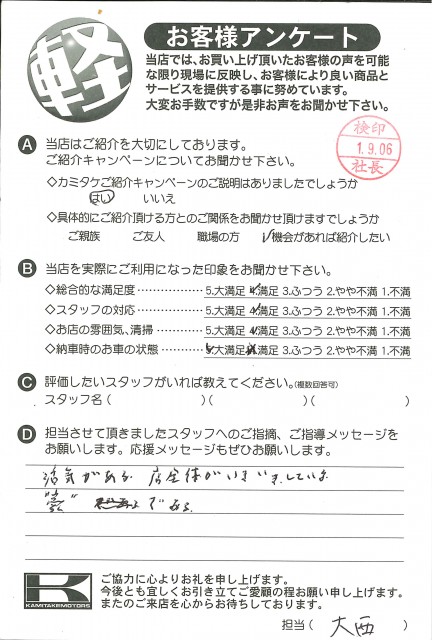 軽
お客様アンケート
当店では、お買い上げ頂いたお客様の声を可能
な限り現場に反映し、お客様により良い商品と
サービスを提供する事に努めています。
大変お手数ですが是非お声をお聞かせ下さい。
検印
1.9.06
社長
A 当店はご紹介を大切にしております。
ご紹介キャンペーンについてお聞かせ下さい。
◇カミタケご紹介キャンペーンのご説明はありましたでしょうか
はい いいえ
◇具体的にご紹介頂ける方とのご関係をお聞かせ頂けますでしょうか
ご親族 ご友人 職場の方 ✓機会があれば紹介したい
B 当店を実際にご利用になった印象をお聞かせ下さい。
◇総合的な満足度 ……………… 5.大満足 4.満足 3.ふつう 2.やや不満 1.不満
◇スタッフの対応 ……………… 5.大満足 4.満足 3.ふつう 2.やや不満 1.不満
◇お店の雰囲気、清掃 ………… 5.大満足 4.満足 3.ふつう 2.やや不満 1.不満
◇納車時のお車の状態 ………… 5.大満足 4.満足 3.ふつう 2.やや不満 1.不満
C 評価したいスタッフがいれば教えてください。(複数回答可)
スタッフ名( )( )( )
D 担当させて頂きましたスタッフへのご指摘、ご指導メッセージを
お願いします。応援メッセージもぜひお願いします。
活気がある 店全体がいきいきしている
である
K
KAMITAKEMOTORS
ご協力に心よりお礼を申し上げます。
今後とも宜しくお引き立てご愛顧の程お願い申し上げます。
またのご来店を心からお待ちしております。
担当( 大西 )